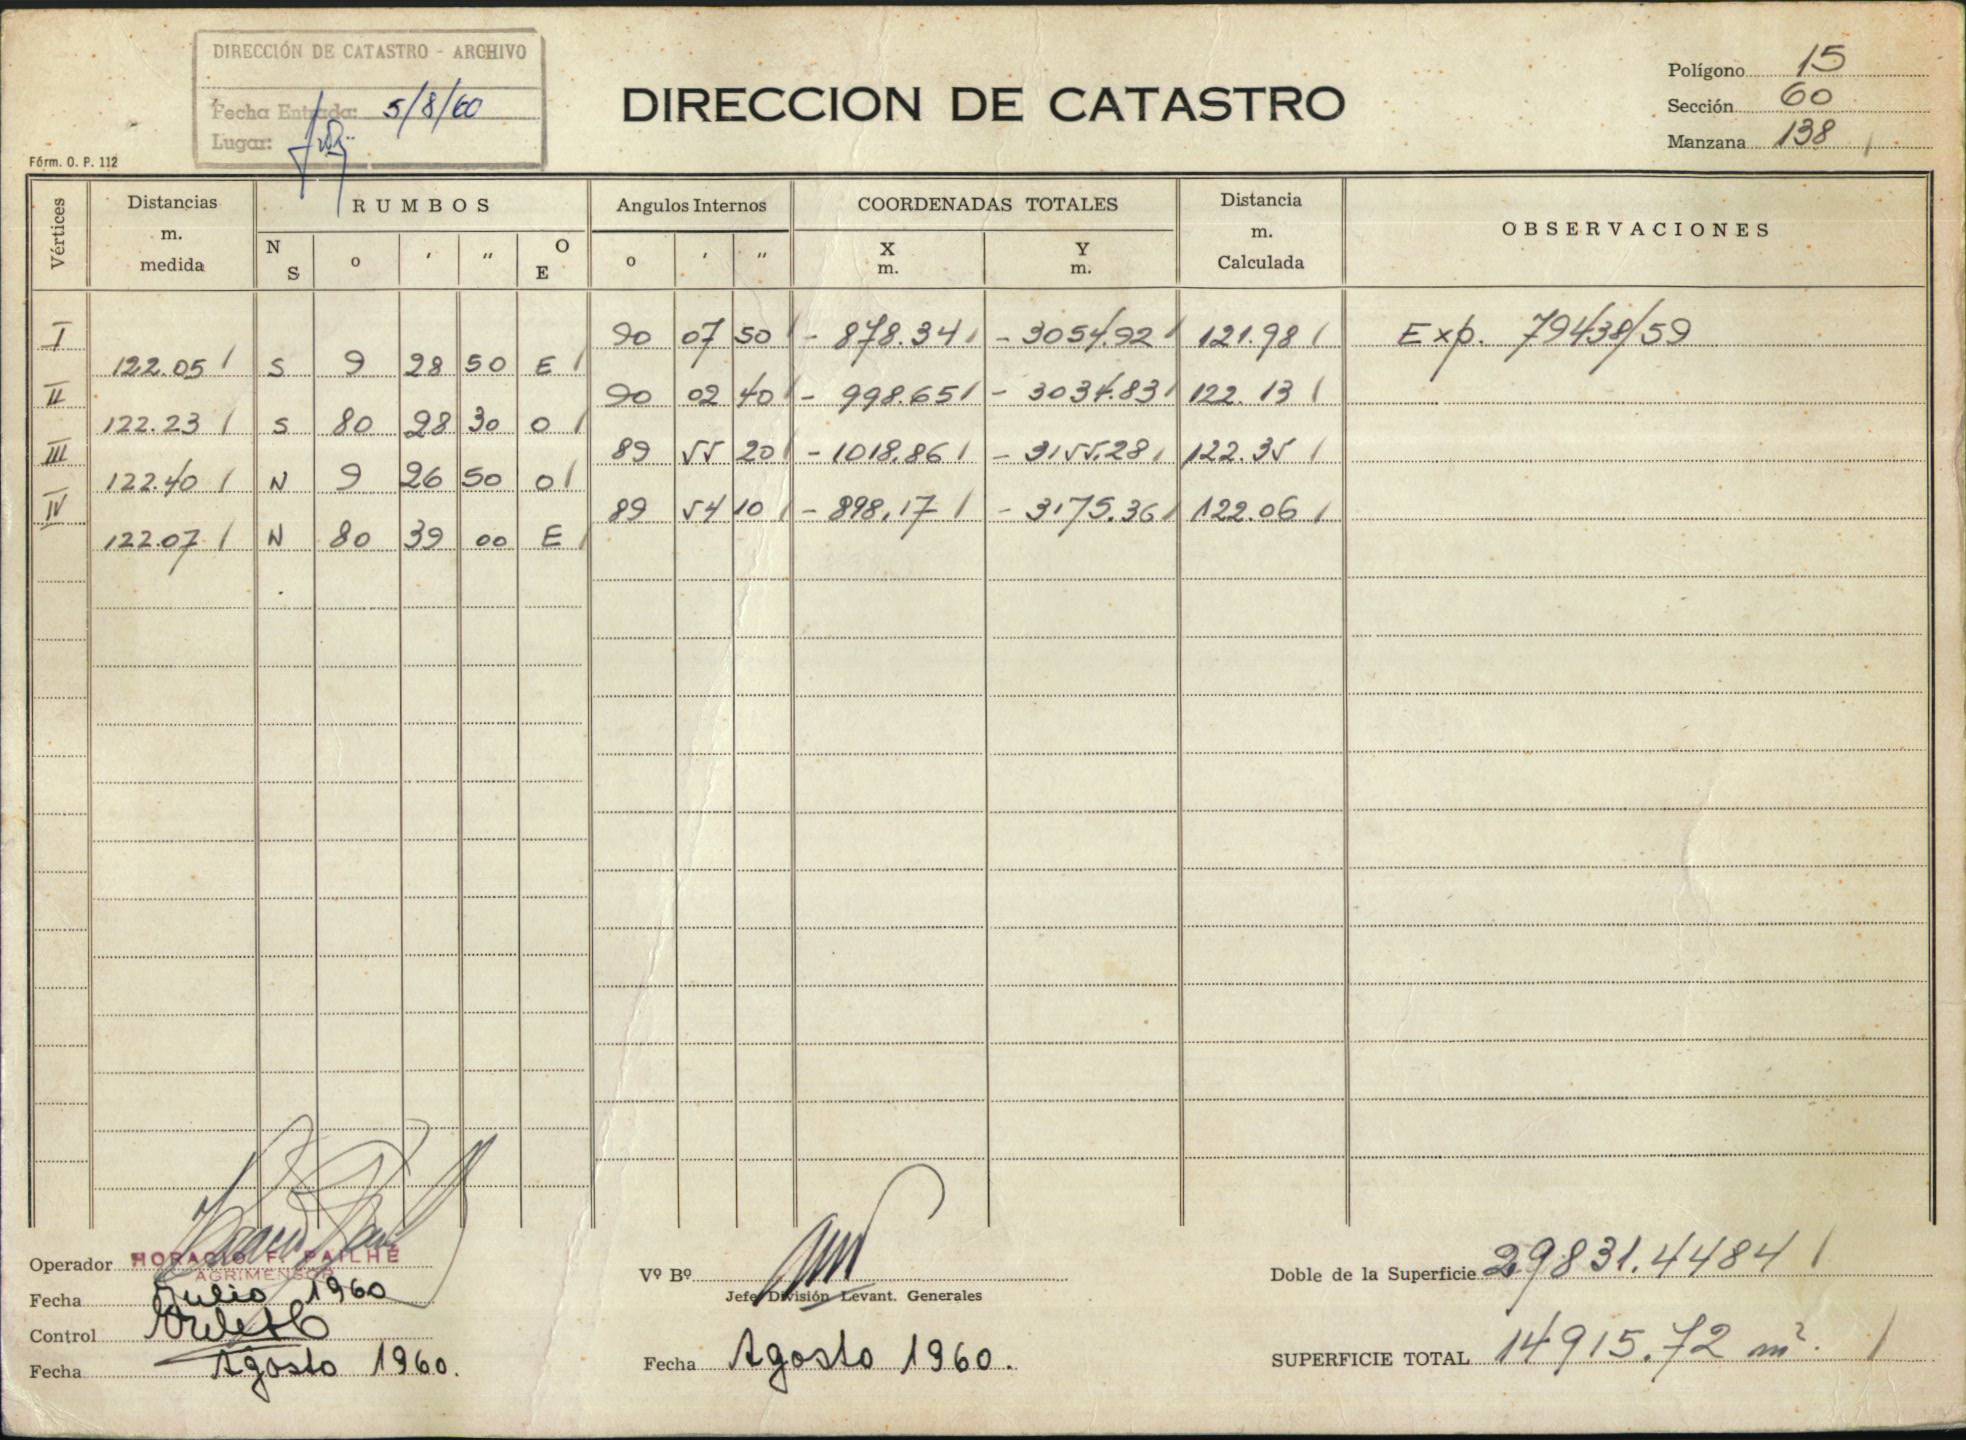 DIRECCIÓN DE CATASTRO - ARCHIVO
Fecha Entrada: 5/8/60
Lugar:
Fórm. O. P. 112
DIRECCION DE CATASTRO
Polígono 15
Sección 60
Manzana 138
Vértices Distancias m. medida RUMBOS Angulos Internos COORDENADAS TOTALES Distancia m. Calculada OBSERVACIONES
N S o ' " O E o ' " X m. Y m.
I 90 07 50 - 878.34 - 3054.92 121.98 Exp. 79438/59
122.05 S 9 28 50 E
II 90 02 40 - 998.65 - 3034.83 122.13
122.23 S 80 28 30 O
III 89 55 20 - 1018.86 - 3155.28 122.35
122.40 N 9 26 50 O
IV 89 54 10 - 898.17 - 3175.36 122.06
122.07 N 80 39 00 E
Operador HORACIO F. PAILHÉ
AGRIMENSOR
Fecha Julio 1960
Control
Fecha Agosto 1960.
Vº Bº
Jefe División Levant. Generales
Fecha Agosto 1960.
Doble de la Superficie 29831.4484
SUPERFICIE TOTAL 14915.72 m².